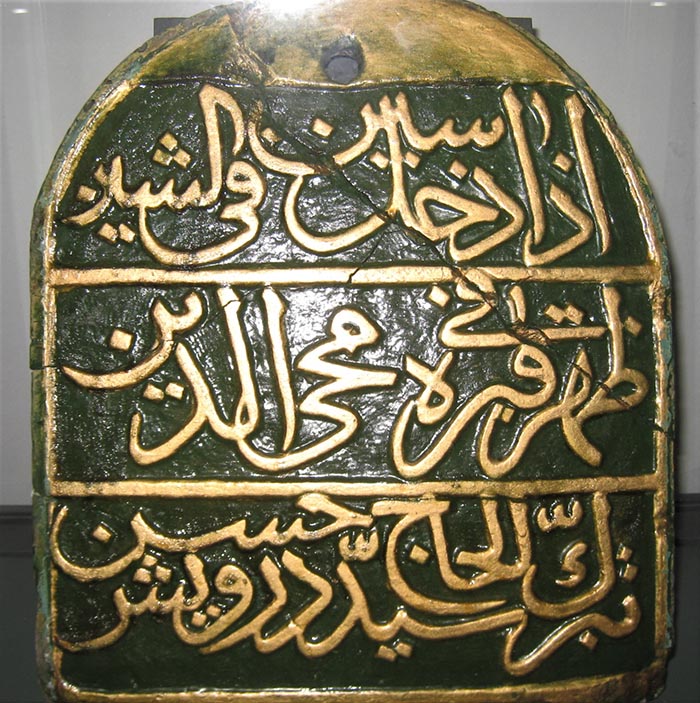 اذا دخل سين فى الشين
ظهر فى قبره محى الدين
تبرك الحاج سيّد درويش حسين